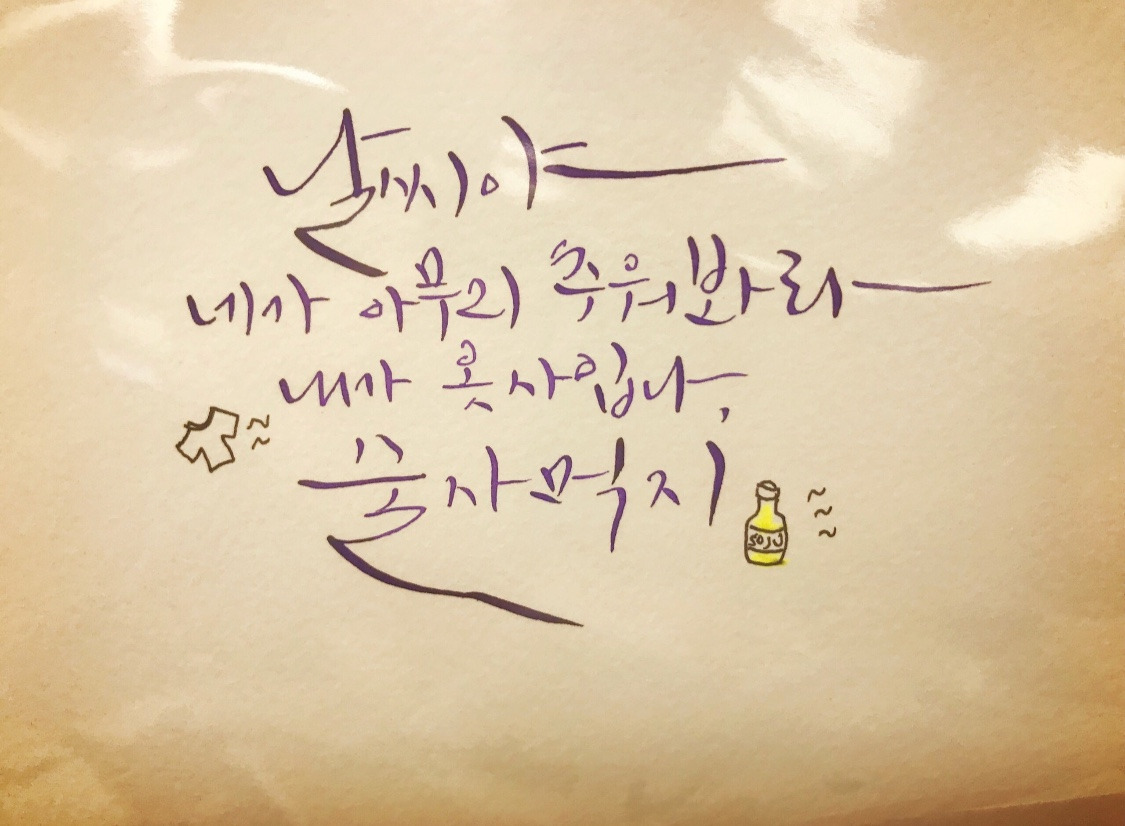 날씨야
네가 아무리 추워봐라
내가 옷 사입나,
술 사먹지
SOJU